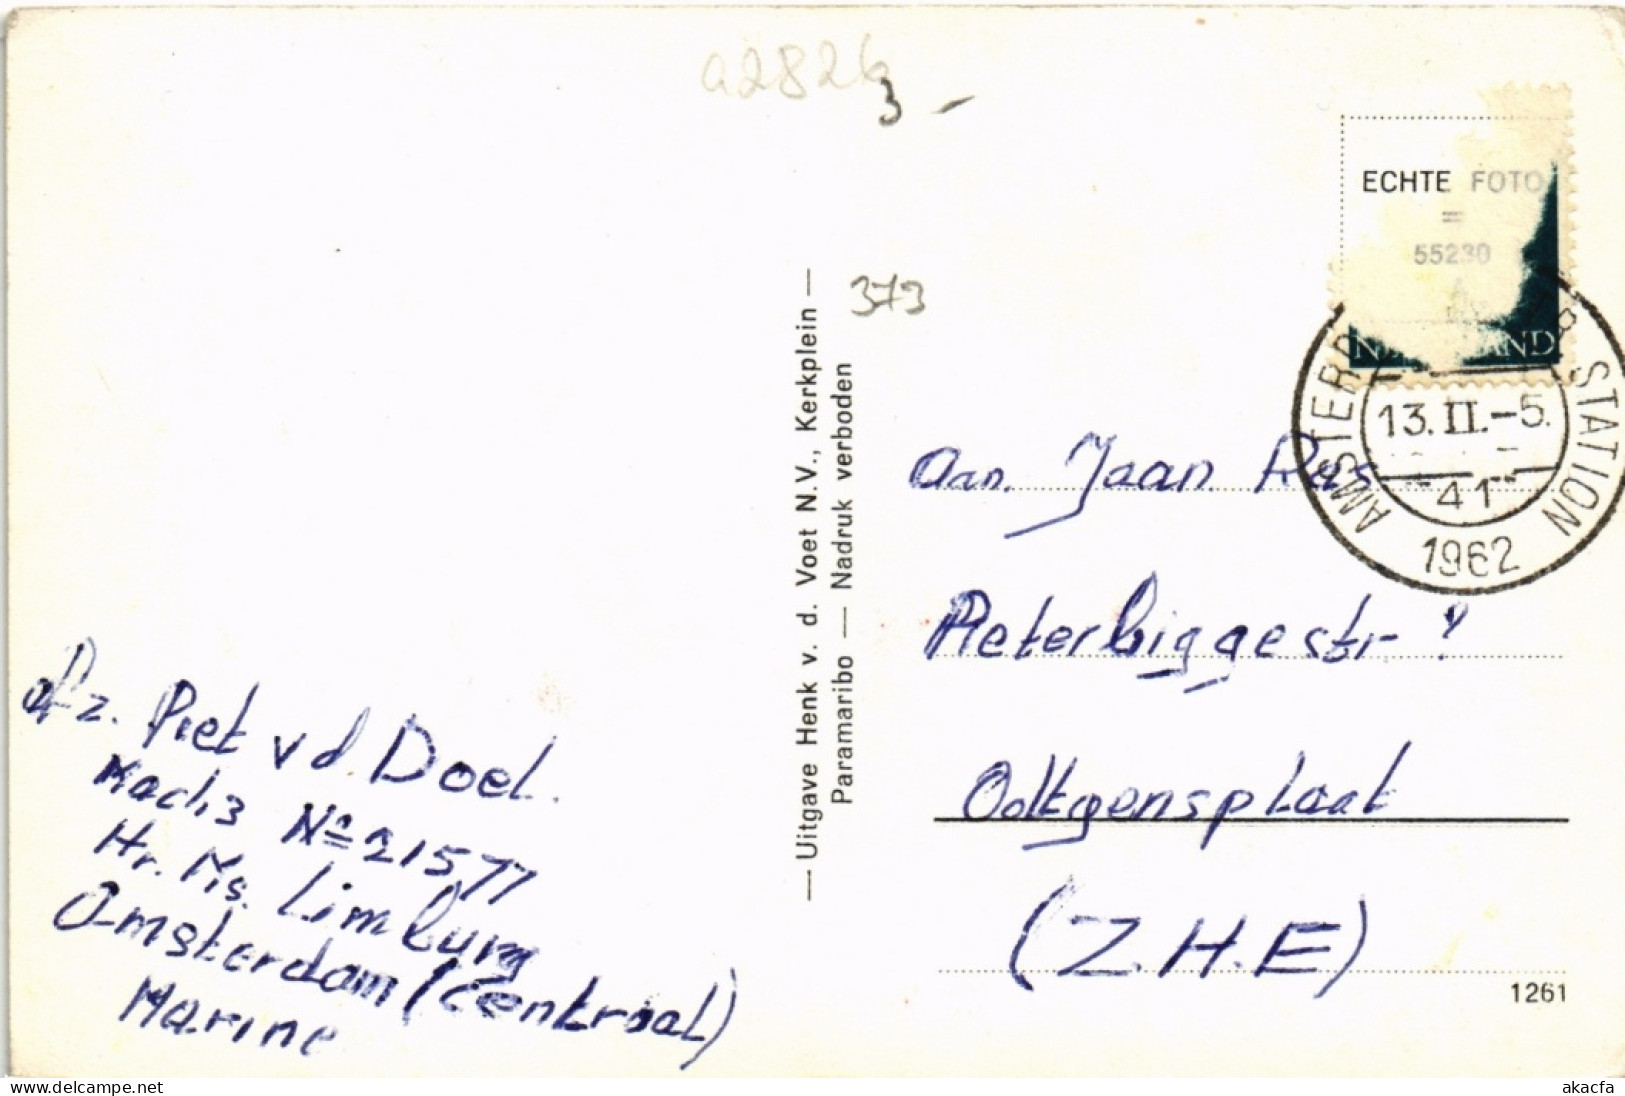 a2826
3 -
ECHTE FOTO
=
55230
NEDERLAND
AMSTERD
STATION
13.II.-5.
41
1962
373
— Uitgave Henk v. d. Voet N.V., Kerkplein —
Paramaribo — Nadruk verboden
Aan. Jaan Ras
Pieterbiggestr ?
Ooltgensplaat
(Z.H.E)
1261
afz. Piet v d. Doel.
Nº 21577
Hr. Ms. Limburg
Amsterdam (Centraal)
Marine
delcampe.net
akacfa